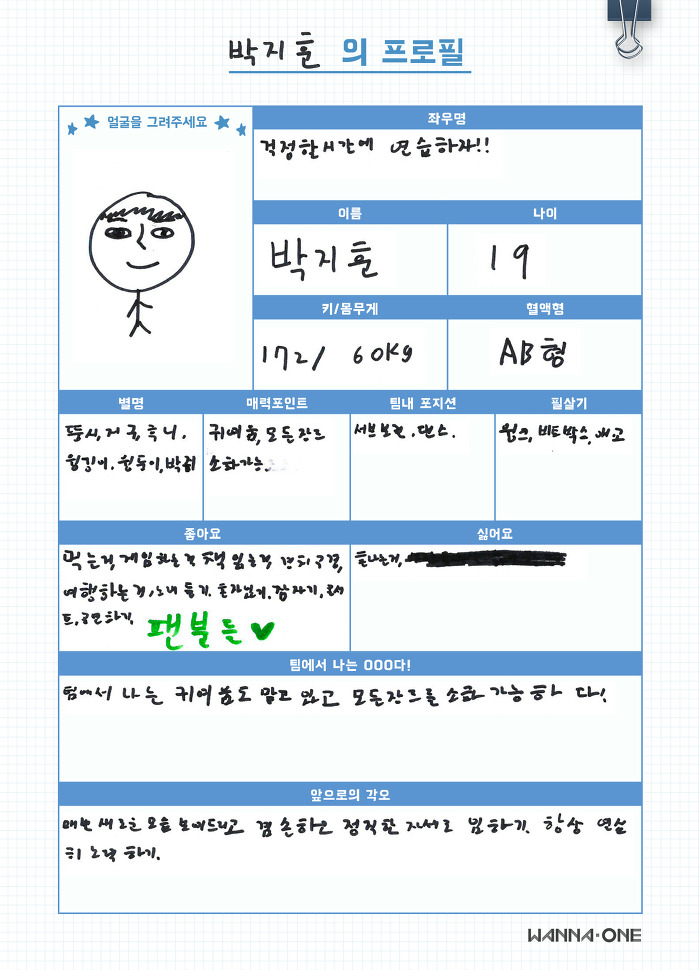 박지훈 의 프로필
얼굴을 그려주세요
좌우명
걱정할시간에 연습하자!!
이름
나이
박지훈
19
키/몸무게
혈액형
172/ 60kg
AB형
별명
매력포인트
팀내 포지션
필살기
윙깅이. 윙동이, 박쥐
귀여움, 모든장르
소화가능
서브보컬, 댄스.
윙크, 비트박스, 애교
좋아요
싫어요
먹는것, 게임하는것 책읽는것 경치구경,
여행하는거, 노래 듣기, 혼자있기, 잠자기,
팬분들♥
혼나는것,
팀에서 나는 OOO다!
팀에서 나는 귀여움도 맡고 있고 모든장르를 소화가능하 다!
앞으로의 각오
매번 새로운 모습 보여드리고 겸손하고 정직한 자세로 임하기. 항상 연습
히 노력하기.
WANNA·ONE